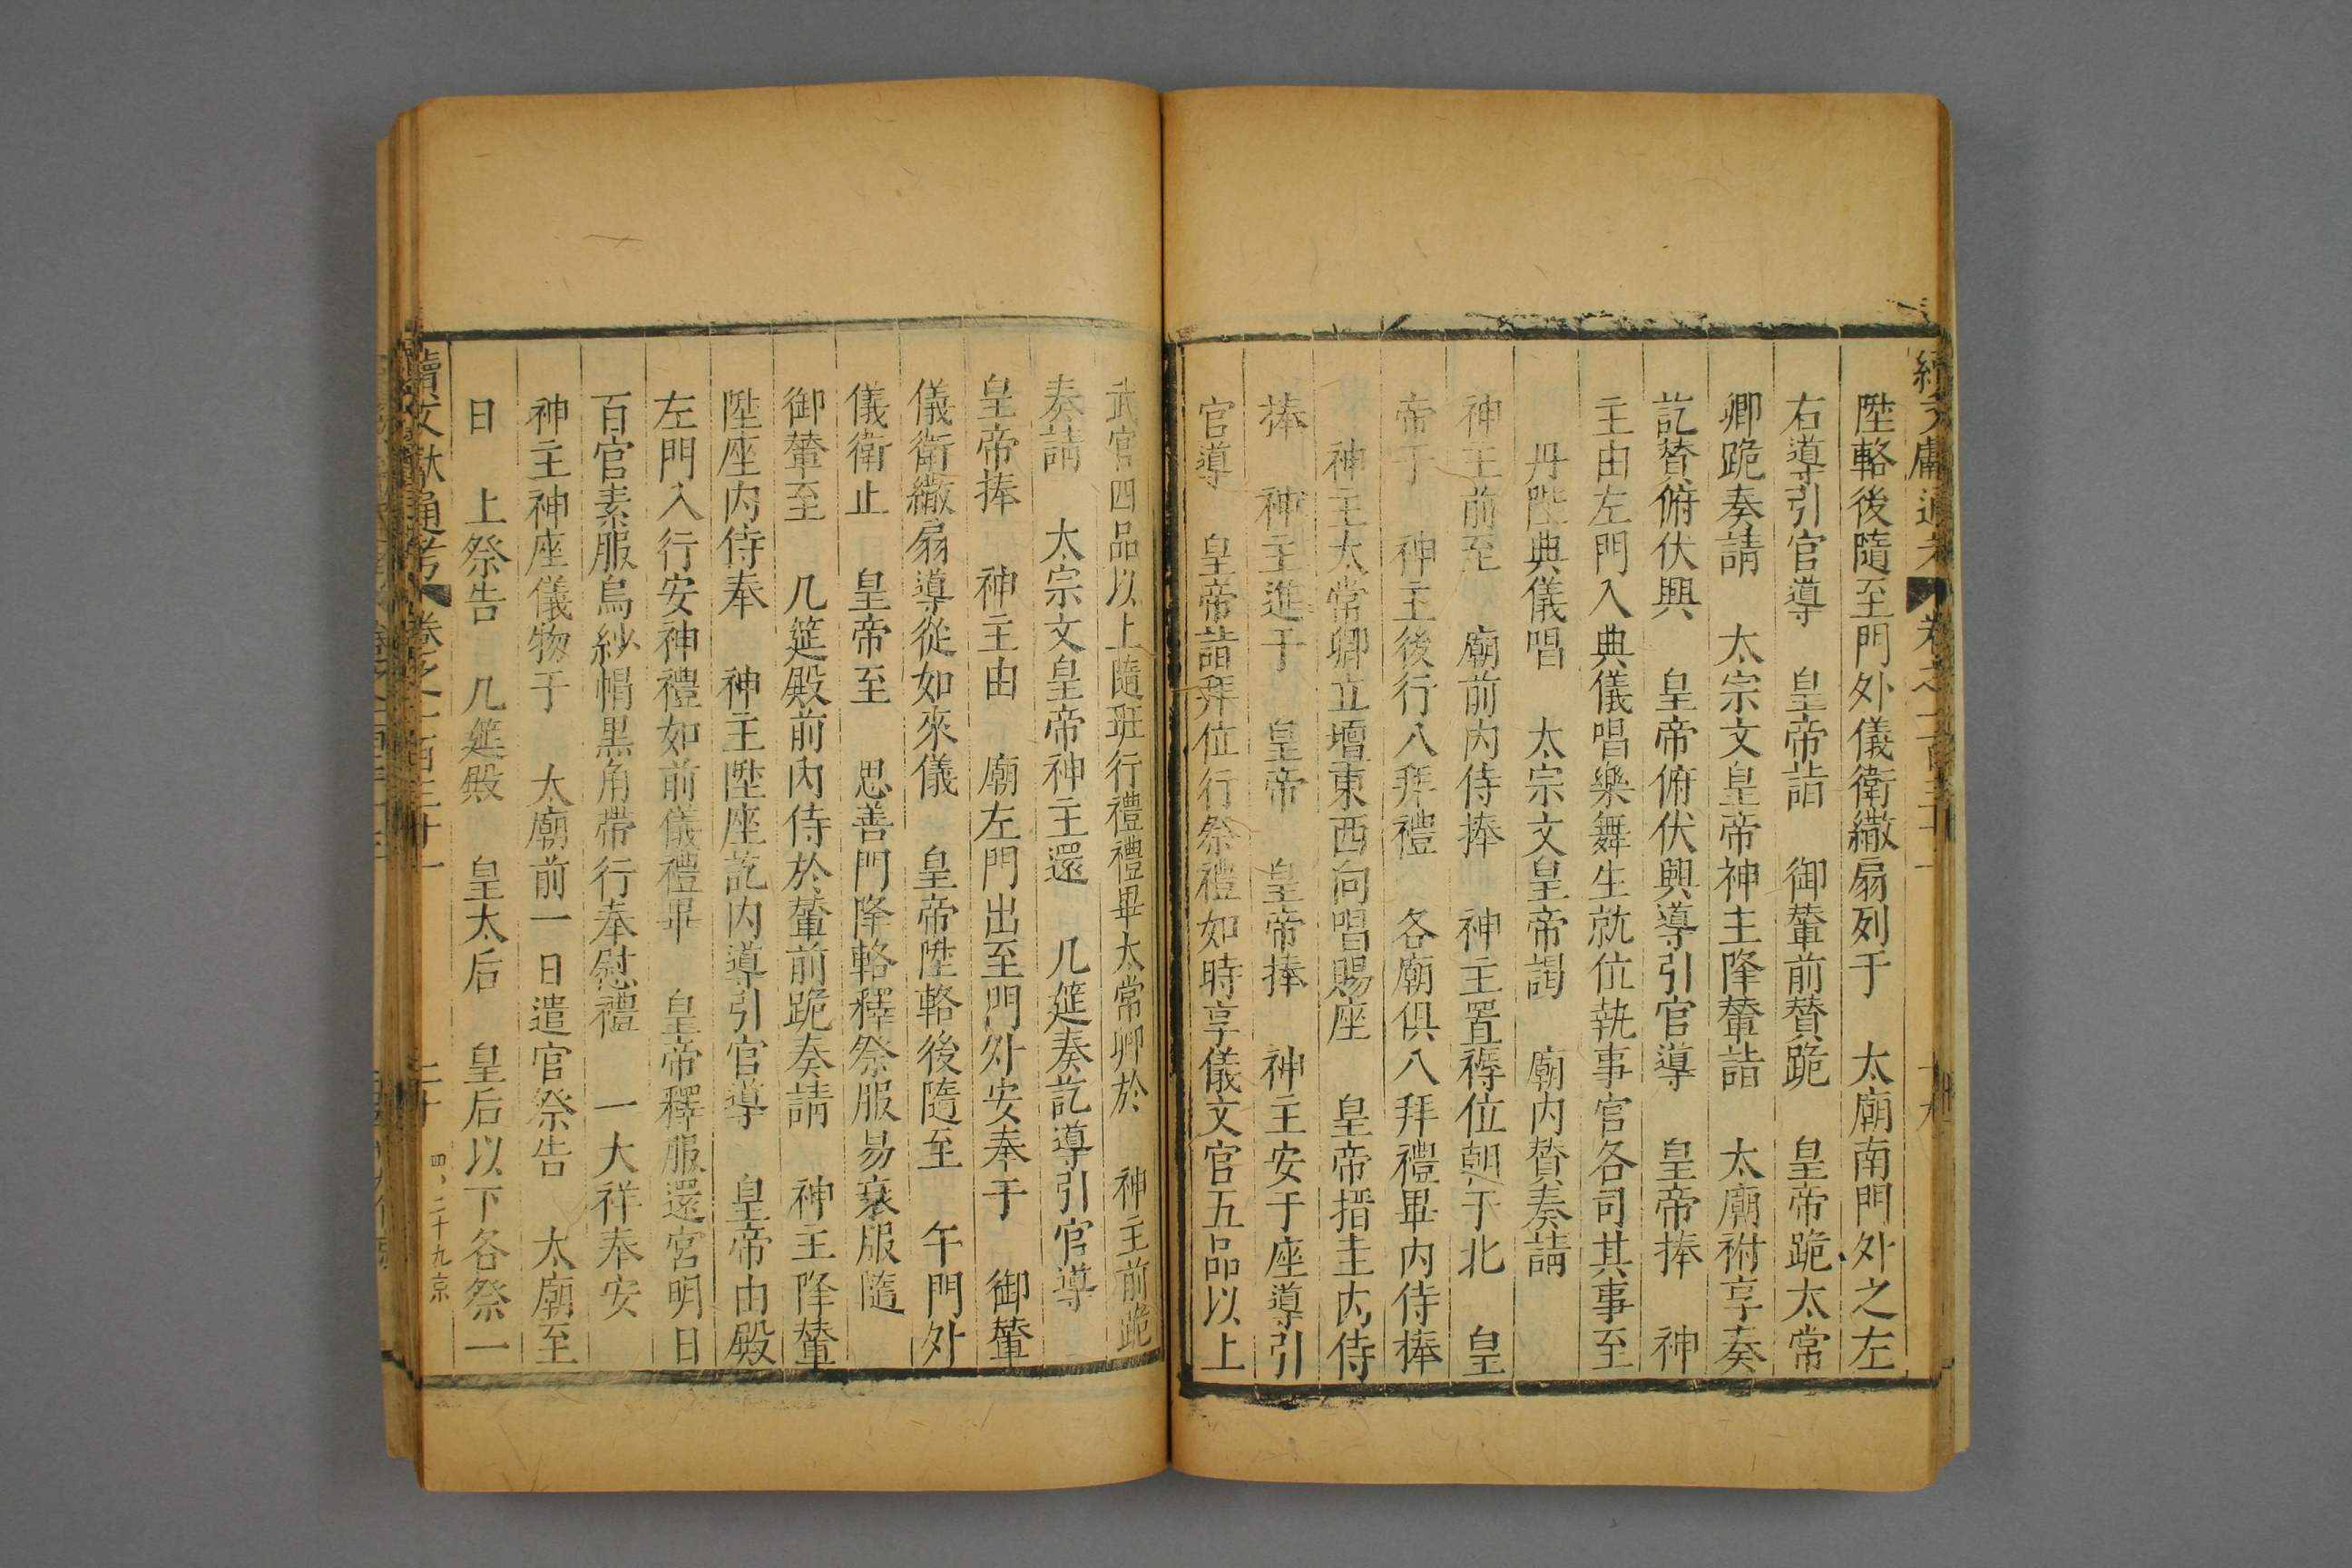 陞輅後隨至門外儀衛繖扇列于 太廟南門外之左
右導引官導 皇帝詣 御輦前贊跪 皇帝跪太常
卿跪奏請 太宗文皇帝神主降輦詣 太廟祔享奏
訖贊俯伏興 皇帝俯伏興導引官導 皇帝捧 神
主由左門入典儀唱樂舞生就位執事官各司其事至
丹陛典儀唱 太宗文皇帝謁 廟內贊奏請
神主前至 廟前內侍捧 神主置褥位朝于北 皇
帝于 神主後行八拜禮 各廟俱八拜禮畢內侍捧
神主太常卿立壇東西向唱賜座 皇帝搢圭內侍
捧 神主進于 皇帝 皇帝捧 神主安于座導引
官導 皇帝詣拜位行祭禮如時享儀文官五品以上
武官四品以上隨班行禮禮畢太常卿於 神主前跪
奏請 太宗文皇帝神主還 几筵奏訖導引官導
皇帝捧 神主由 廟左門出至門外安奉于 御輦
儀衛繖扇導從如來儀 皇帝陞輅後隨至 午門外
儀衛止 皇帝至 思善門降輅釋祭服易衰服隨
御輦至 几筵殿前內侍於輦前跪奏請 神主降輦
陞座內侍奉 神主陞座訖內導引官導 皇帝由殿
左門入行安神禮如前儀禮畢 皇帝釋服還宮明日
百官素服烏紗帽黑角帶行奉慰禮 一大祥奉安
神主神座儀物于 太廟前一日遣官祭告 太廟至
日 上祭告 几筵殿 皇太后 皇后以下各祭一
續文獻通考 卷之一百三十一 二十 四、二十九京